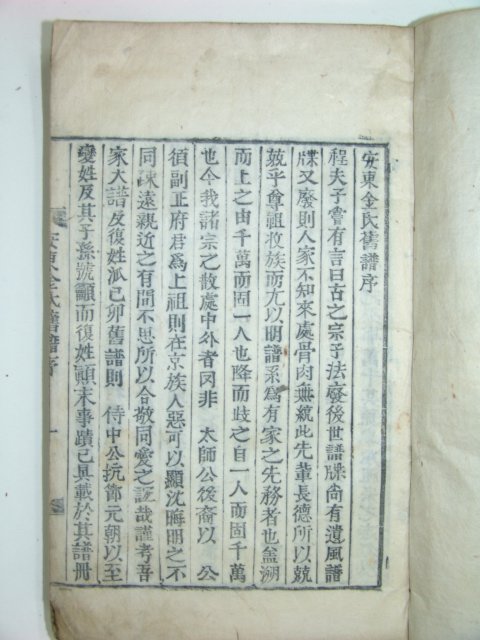 安東金氏舊譜序
程夫子嘗有言曰古之宗子法廢後世譜牒尙有遺風譜
牒又廢則人家不知來處骨肉無統此先輩長德所以兢
兢乎尊祖收族而尤以明譜系爲有家之先務者也盖溯
而上之由千萬而固一人也降而歧之自一人而固千萬
也今我諸宗之散處中外者罔非 太師公後裔以 公
須副正府君爲上祖則在京族人惡可以顯沈晦明之不
同疎遠親近之有間不思所以合敬同愛之誼哉謹考吾
家大譜及復姓派己卯舊譜則 侍中公抗節元朝以至
變姓及其子孫號籲而復姓顚末事蹟已具載於其譜冊
安東金氏舊譜序 一